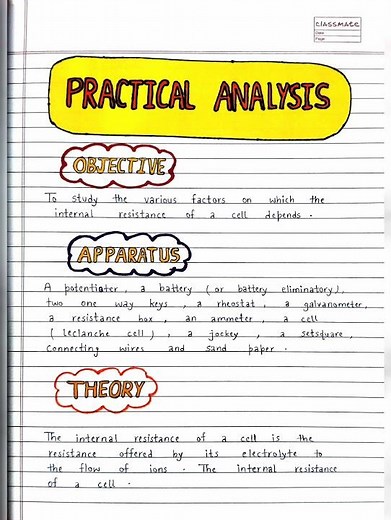 classmate
Date
Page
PRACTICAL ANALYSIS
OBJECTIVE
To study the various factors on which the
internal resistance of a cell depends.
APPARATUS
A potentiater, a battery (or battery eliminatory),
two one way keys, a rheostat, a galvanometer,
a resistance box, an ammeter, a cell
(leclanche cell), a jockey, a setsquare,
connecting wires and sand paper.
THEORY
The internal resistance of a cell is the
resistance offered by its electrolyte to
the flow of ions. The internal resistance
of a cell.